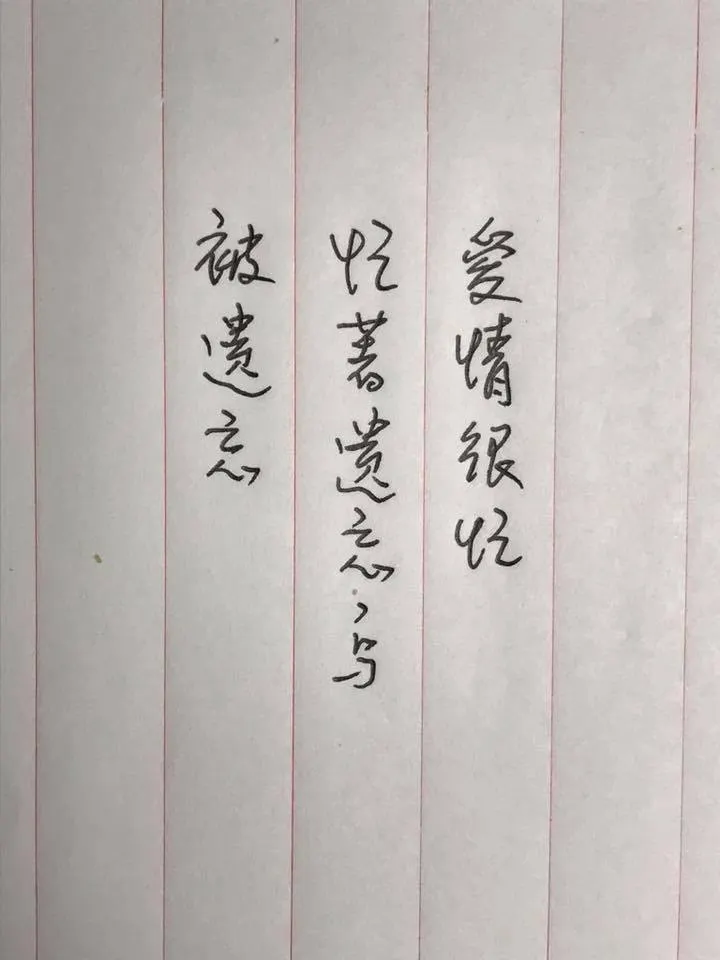 愛情很忙
忙著遺忘，与
被遺忘